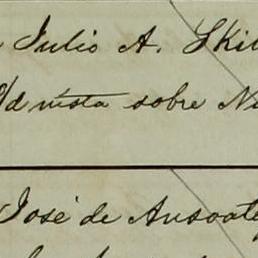 Julio A. Skil
vista sobre Nu
José de Ansoate